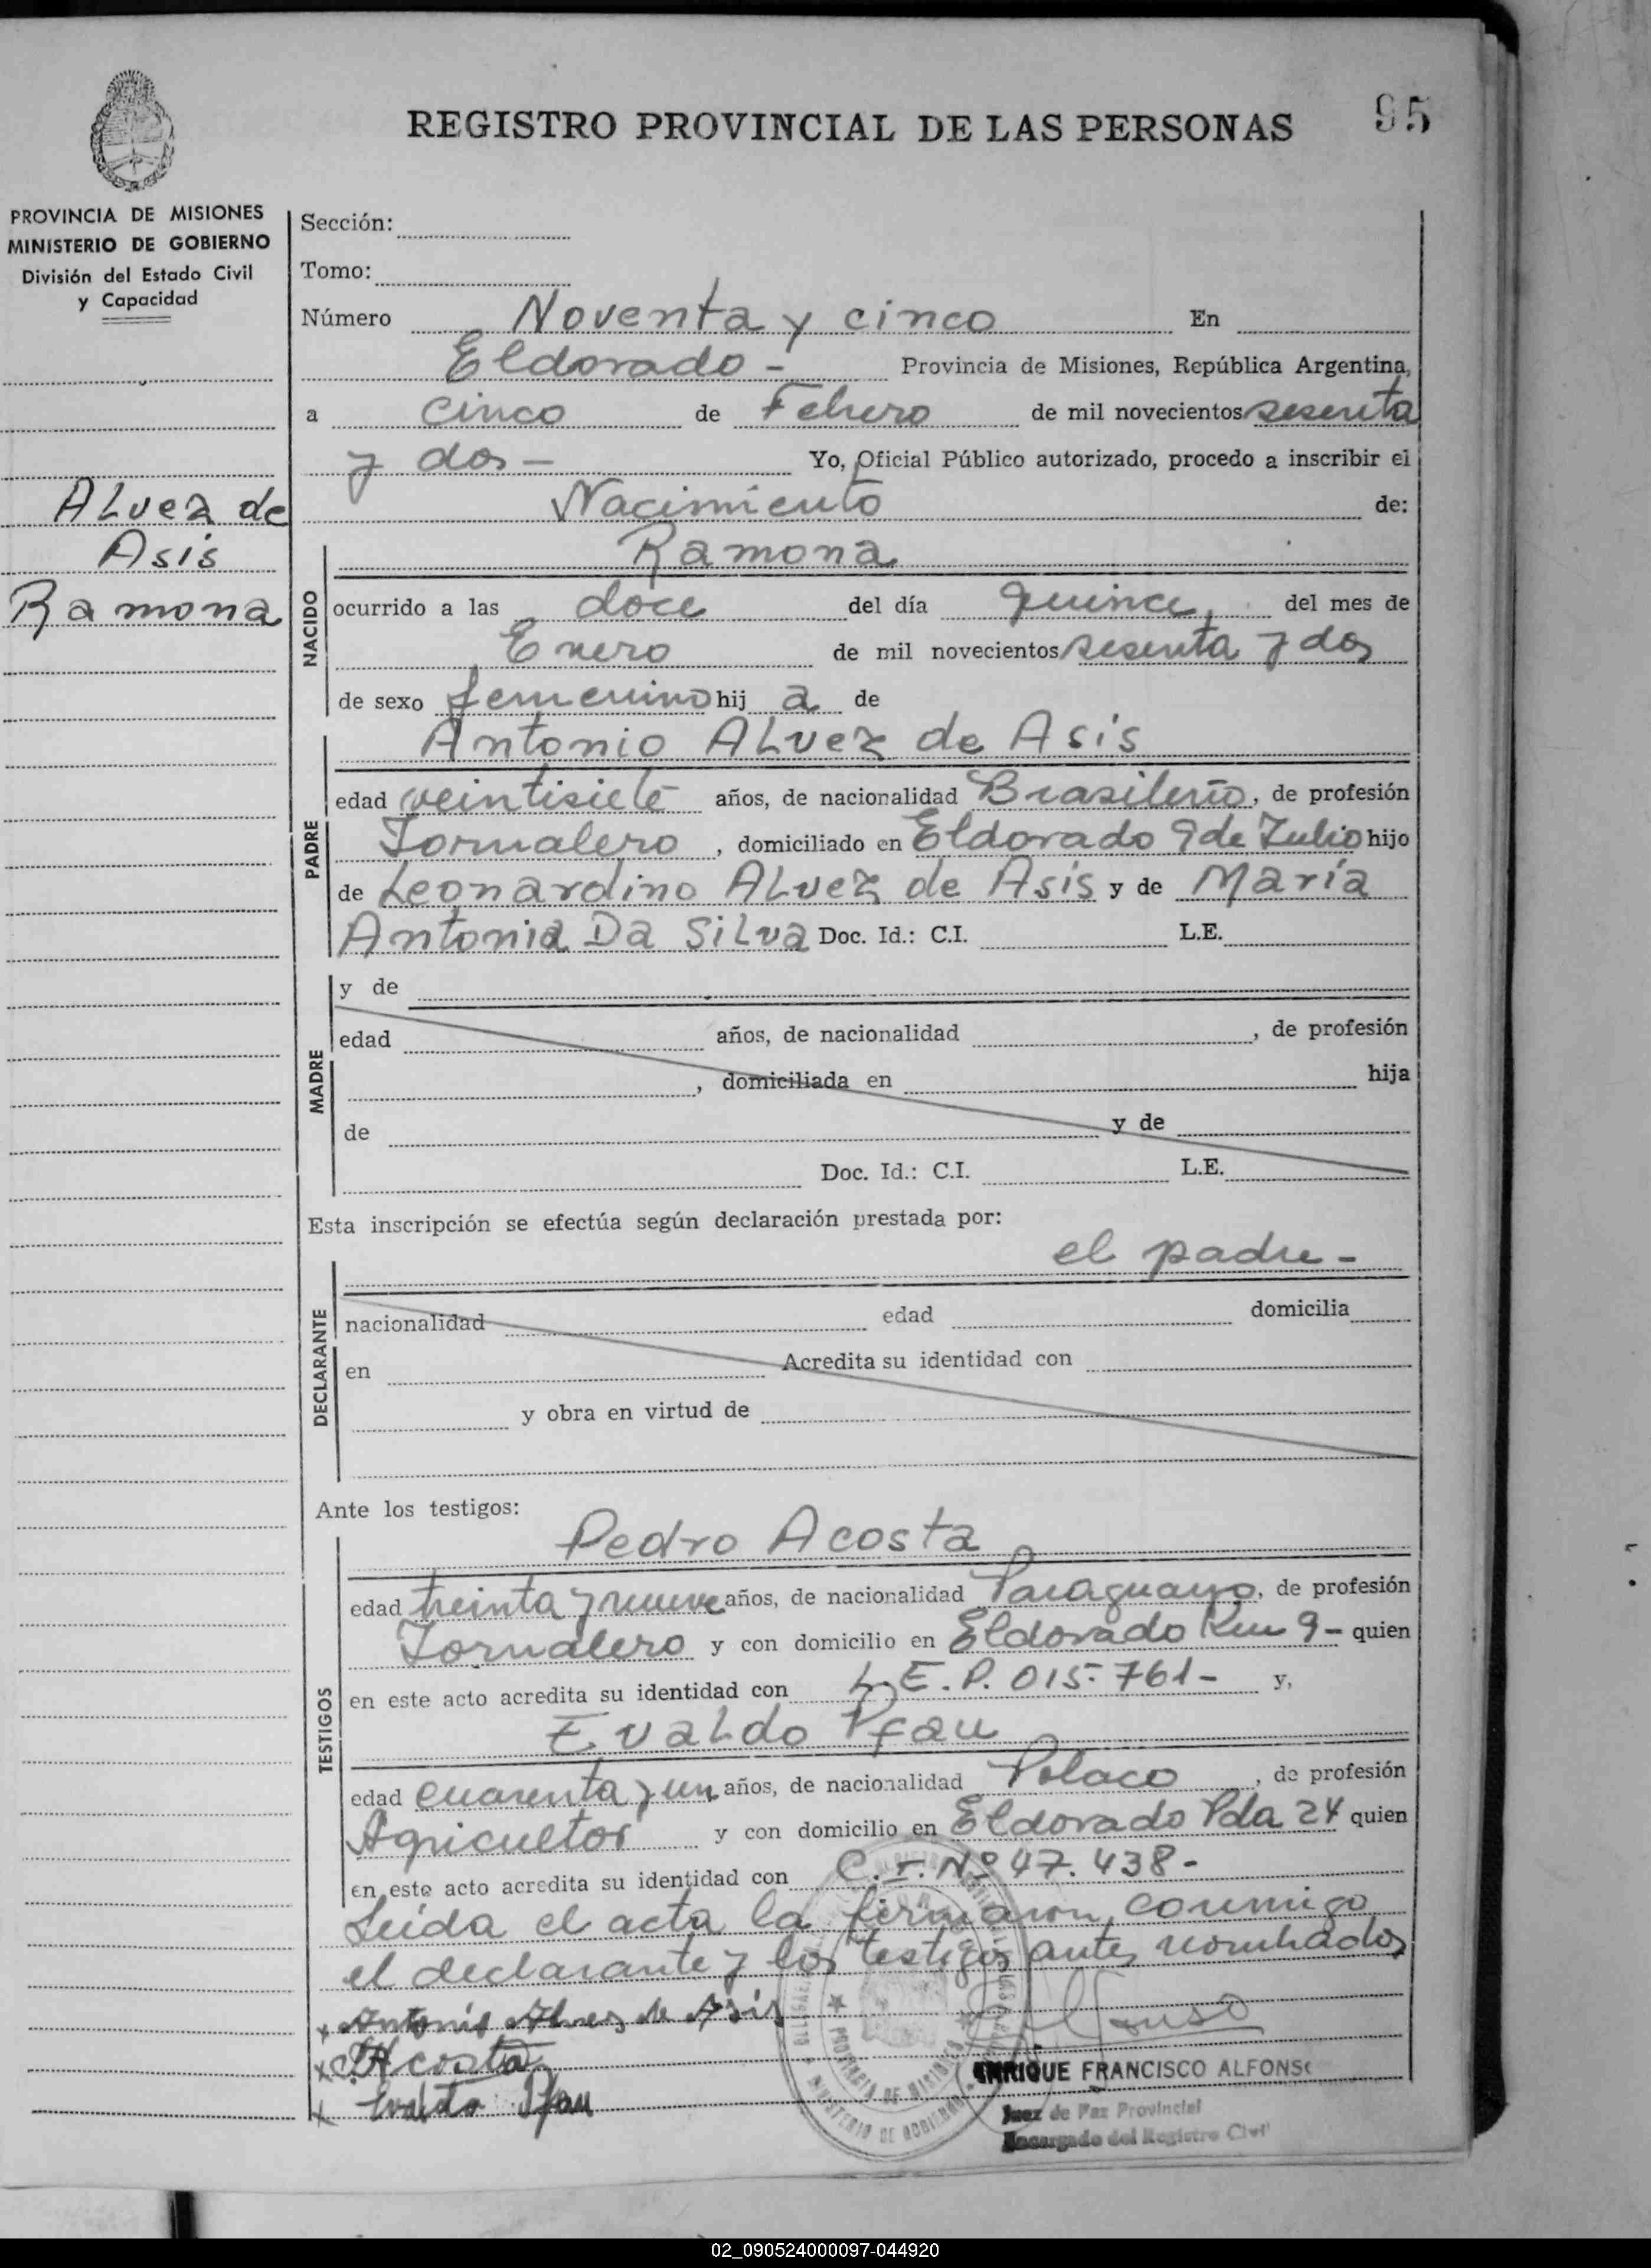 REGISTRO PROVINCIAL DE LAS PERSONAS
95
PROVINCIA DE MISIONES
MINISTERIO DE GOBIERNO
División del Estado Civil
y Capacidad
Alvez de
Asis
Ramona
Sección:
Tomo:
Número Noventa y cinco En
Eldorado - Provincia de Misiones, República Argentina,
a cinco de Febrero de mil novecientos sesenta
y dos - Yo, Oficial Público autorizado, procedo a inscribir el
Nacimiento de:
NACIDO
Ramona
ocurrido a las doce del día quince, del mes de
Enero de mil novecientos sesenta y dos
de sexo femenino hij a de
PADRE
Antonio Alvez de Asis
edad veintisiete años, de nacionalidad Brasileño, de profesión
Jornalero, domiciliado en Eldorado 9 de Julio hijo
de Leonardino Alvez de Asis y de María
Antonia Da Silva Doc. Id.: C.I. L.E.
MADRE
y de
edad años, de nacionalidad , de profesión
, domiciliada en hija
de y de
Doc. Id.: C.I. L.E.
Esta inscripción se efectúa según declaración prestada por:
el padre -
DECLARANTE
nacionalidad edad domicilia
en Acredita su identidad con
y obra en virtud de
Ante los testigos:
TESTIGOS
Pedro Acosta
edad treinta y nueve años, de nacionalidad Paraguayo, de profesión
Jornalero y con domicilio en Eldorado Km 9 - quien
en este acto acredita su identidad con L.E.P. 015.761 - y,
Evaldo Pfau
edad cuarenta y un años, de nacionalidad Polaco, de profesión
Agricultor y con domicilio en Eldorado Pda 24 quien
en este acto acredita su identidad con C.I. Nº 47.438 -
Leída el acta la firmaron conmigo
el declarante y los testigos antes nombrados
x Antonio Alves de Asis
x Acosta
x Evaldo Pfau
PROVINCIA DE MISIONES
MINISTERIO DE GOBIERNO
ENRIQUE FRANCISCO ALFONSO
Juez de Paz Provincial
Encargado del Registro Civil
02_090524000097-044920